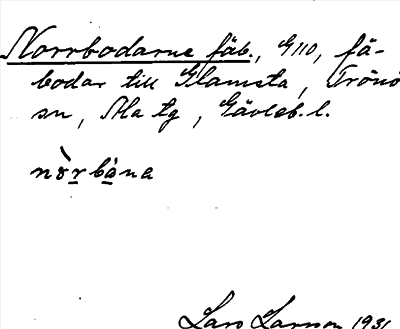 Norrbodarne fäb., G110, fä-
bodar till Glamsta, Trönö
sn, Ala tg, Gävleb. l.
nòrbȧna
Lars Larsson 1931